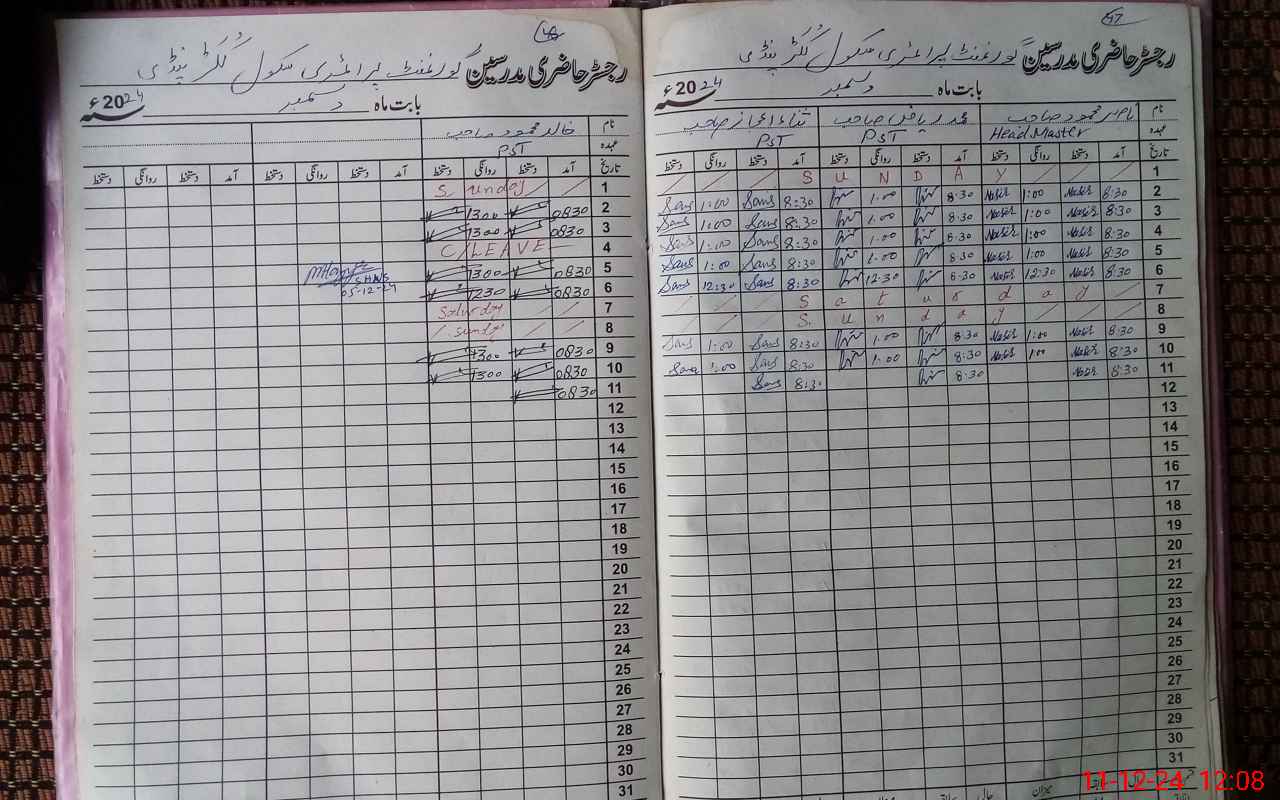 47
رجسٹر حاضری مدرسین گورنمنٹ پرائمری سکول ککڑ پنڈی
بابت ماہ دسمبر 2024ء
نام ناصر محمود صاحب محمد ریاض صاحب ثناء اعجاز صاحب
عہدہ Head Master PST PST
تاریخ آمد دستخط روانگی دستخط آمد دستخط روانگی دستخط آمد دستخط روانگی دستخط
1 S U N D A Y
2 8:30 Nasir 1:00 Nasir 8:30 1:00 8:30 Sans 1:00 Sans
3 8:30 Nasir 1:00 Nasir 8:30 1:00 8:30 Sans 1:00 Sans
4 8:30 Nasir 1:00 Nasir 8:30 1:00 8:30 Sans 1:00 Sans
5 8:30 Nasir 1:00 Nasir 8:30 1:00 8:30 Sans 1:00 Sans
6 8:30 Nasir 12:30 Nasir 8:30 12:30 8:30 Sans 12:30 Sans
7 S a t u r d a y
8 S u n d a y
9 8:30 Nasir 1:00 Nasir 8:30 1:00 8:30 Sans 1:00 Sans
10 8:30 Nasir 1:00 Nasir 8:30 1:00 8:30 Sans 1:00 Sans
11 8:30 Nasir 8:30 8:30 Sans
12
13
14
15
16
17
18
19
20
21
22
23
24
25
26
27
28
29
30
31
48
رجسٹر حاضری مدرسین گورنمنٹ پرائمری سکول ککڑ پنڈی
بابت ماہ دسمبر 2024ء
نام خالد محمود صاحب
عہدہ PST
تاریخ آمد دستخط روانگی دستخط آمد دستخط روانگی دستخط آمد دستخط روانگی دستخط
1 Sunday
2 0830 1300
3 0830 1300
4 C/LEAVE
5 0830 1300
6 0830 1230
05-12-24
7 Saturday
8 Sunday
9 0830 1300
10 0830 1300
11 0830
12
13
14
15
16
17
18
19
20
21
22
23
24
25
26
27
28
29
30
31
11-12-24 12:08